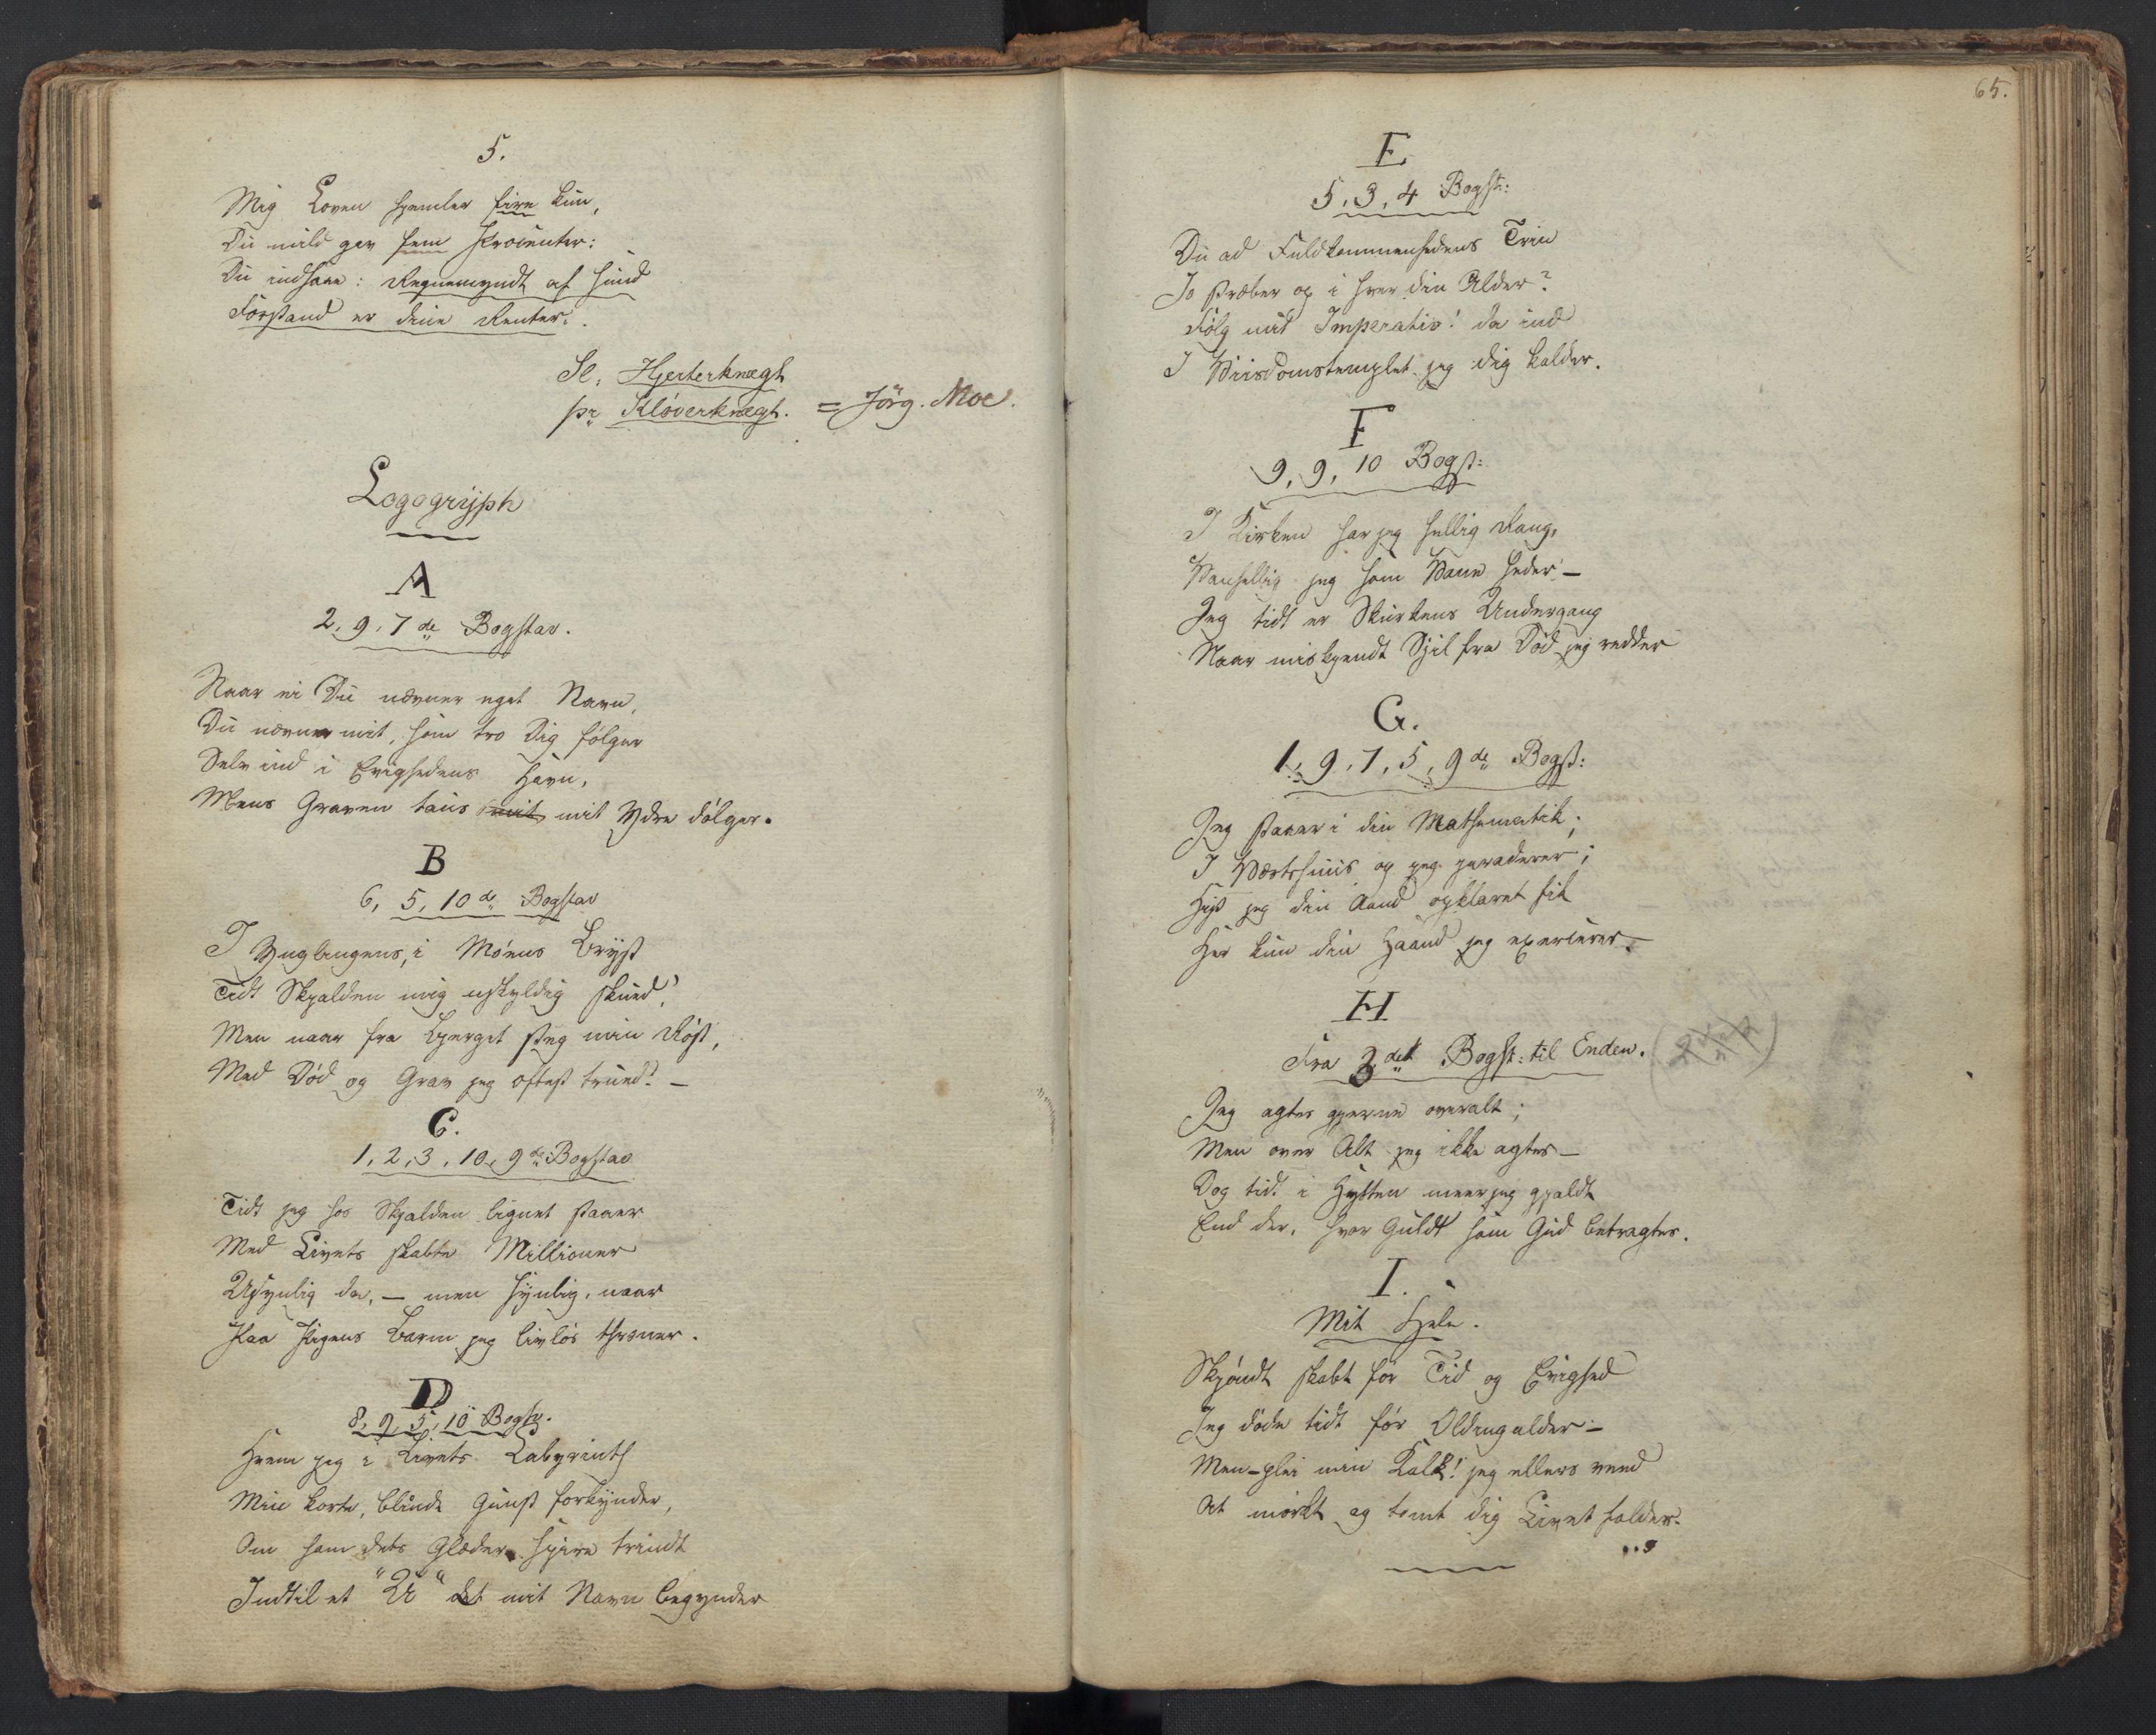 5.
Mig Loven hjemler fire kun,
Du mild gav fem Procenter:
Du indsaae: af sund
Forstand er dine Renter.
Sl. Hjerterknægt
pr Kløverknægt. = Jörg. Moe.
Logogryph
A
2. 9. 7de Bogstav.
Naar ei Du nævner eget Navn,
Du nævner mit, som tro Dig følger
Selv ind i Evighedens Havn,
Mens Graven taus mit mit Ydre dølger.
B
6, 5, 10de Bogstav
I Ynglingens, i Møens Bryst
Tidt Skjalden mig uskyldig skued',
Men naar fra Bjerget steg min Røst,
Med Død og Grav jeg oftest trued'. –
C.
1, 2, 3, 10, 9de Bogstav
Tidt jeg hos Skjalden lignet staaer
Med Livets skabte Millioner
Usynlig da, – men synlig, naar
Paa Pigens Barm jeg livløs throner.
D
8, 9, 5, 10 Bogst.
Hvem jeg i Livets Labyrinth
Min korte, blinde Gunst forkynder,
Om ham dets Glæder spire trindt
Indtil et "U" det mit Navn begynder
65.
E
5, 3, 4 Bogst:
Du ad Fuldkommenhedens Trin
Jo stræber op i hver din Alder?
Følg mit Imperativ! da ind
I Viisdomstemplet jeg dig kalder.
F
9, 9, 10 Bogst:
I Kirken har jeg hellig Rang,
Vanhellig jeg som Vane heder –
Jeg tidt er Skurkens Undergang
Naar miskjendt Sjel fra Død jeg redder
G.
1, 9, 7, 5, 9de Bogst:
Jeg staaer i din Mathematik;
I Værtshuus og jeg paraderer;
Hist jeg din Aand opklaret fik
Her kun din Haand jeg exercerer. –
H
Fra 3det Bogst: til Enden.
Jeg agtes gjerne overalt;
Men over Alt jeg ikke agtes –
Dog tidt i Hytten meer jeg gjaldt
End der, hvor Guldt som Gud betragtes.
I.
Mit Hele.
Skjøndt skabt for Tid og Evighed
Jeg døde tidt før Oldingalder –
Men – glei min Kalk! jeg ellers veed
At mørkt og tomt dig Livet falder.